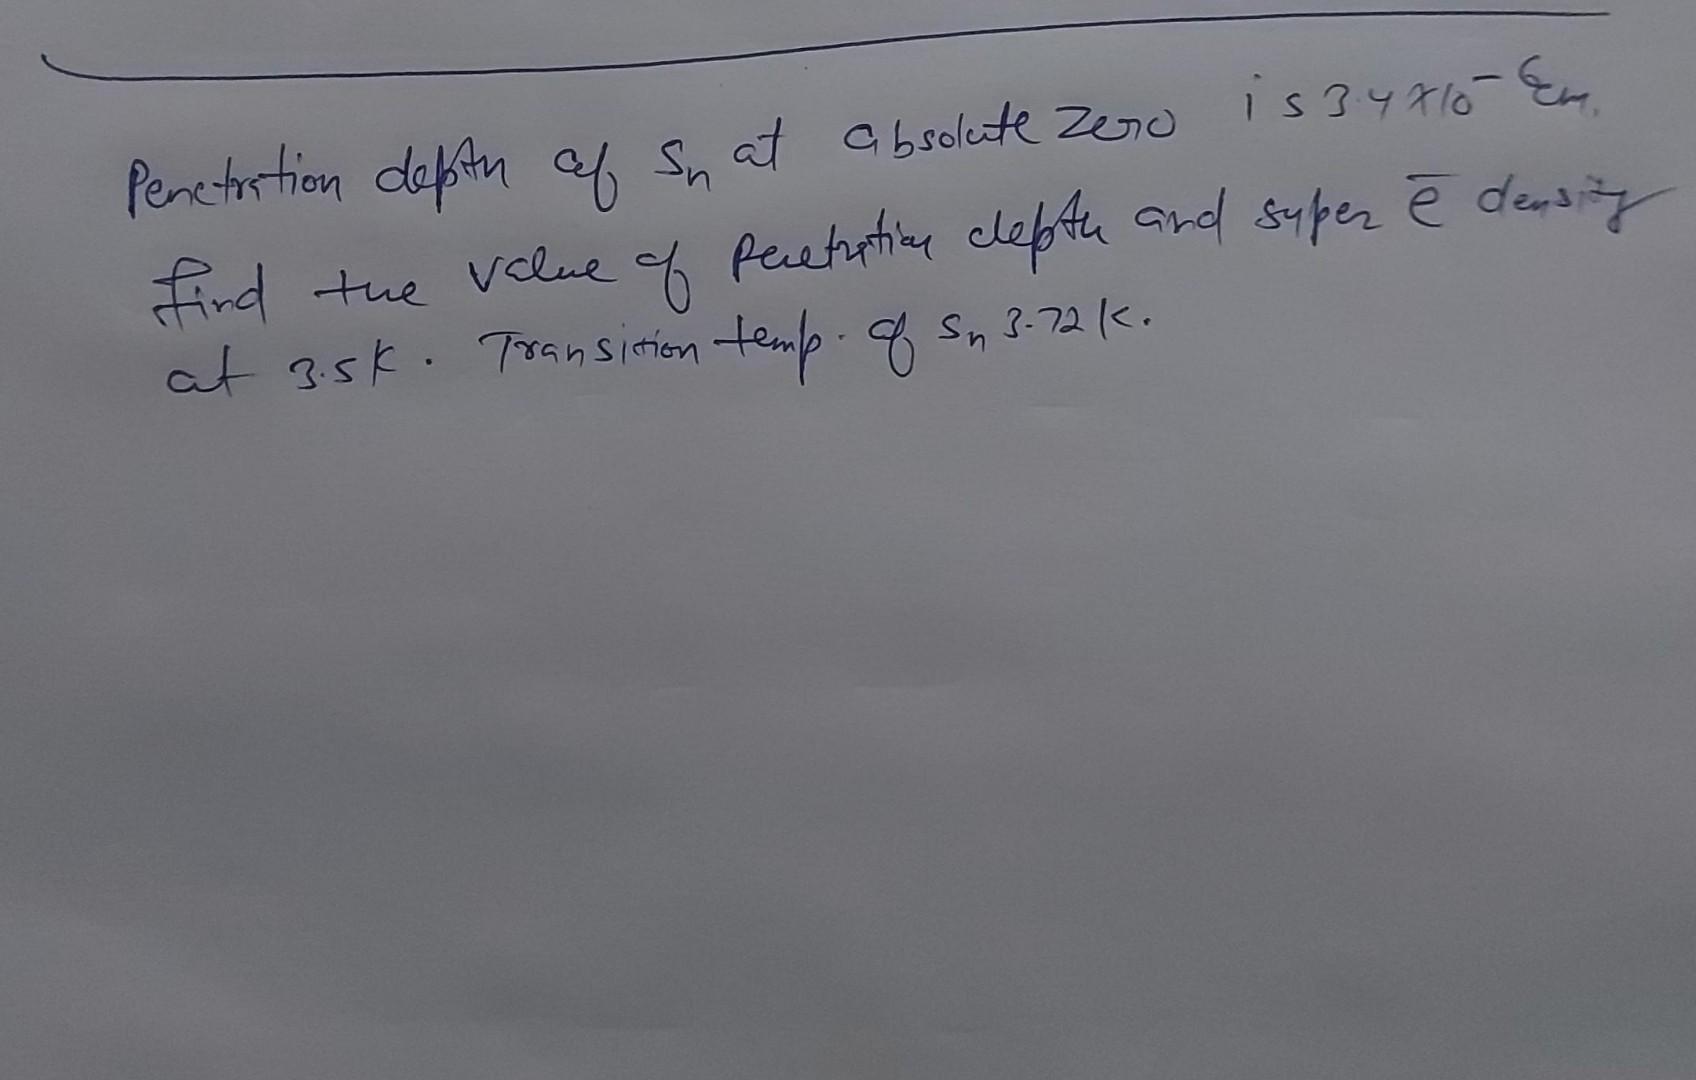 Penetration depth of Sn at absolute zero is 3.4 × 10⁻⁶cm.
find the value of penetration depth and super ē density
at 3.5K. Transition temp. of Sn 3.72 K.